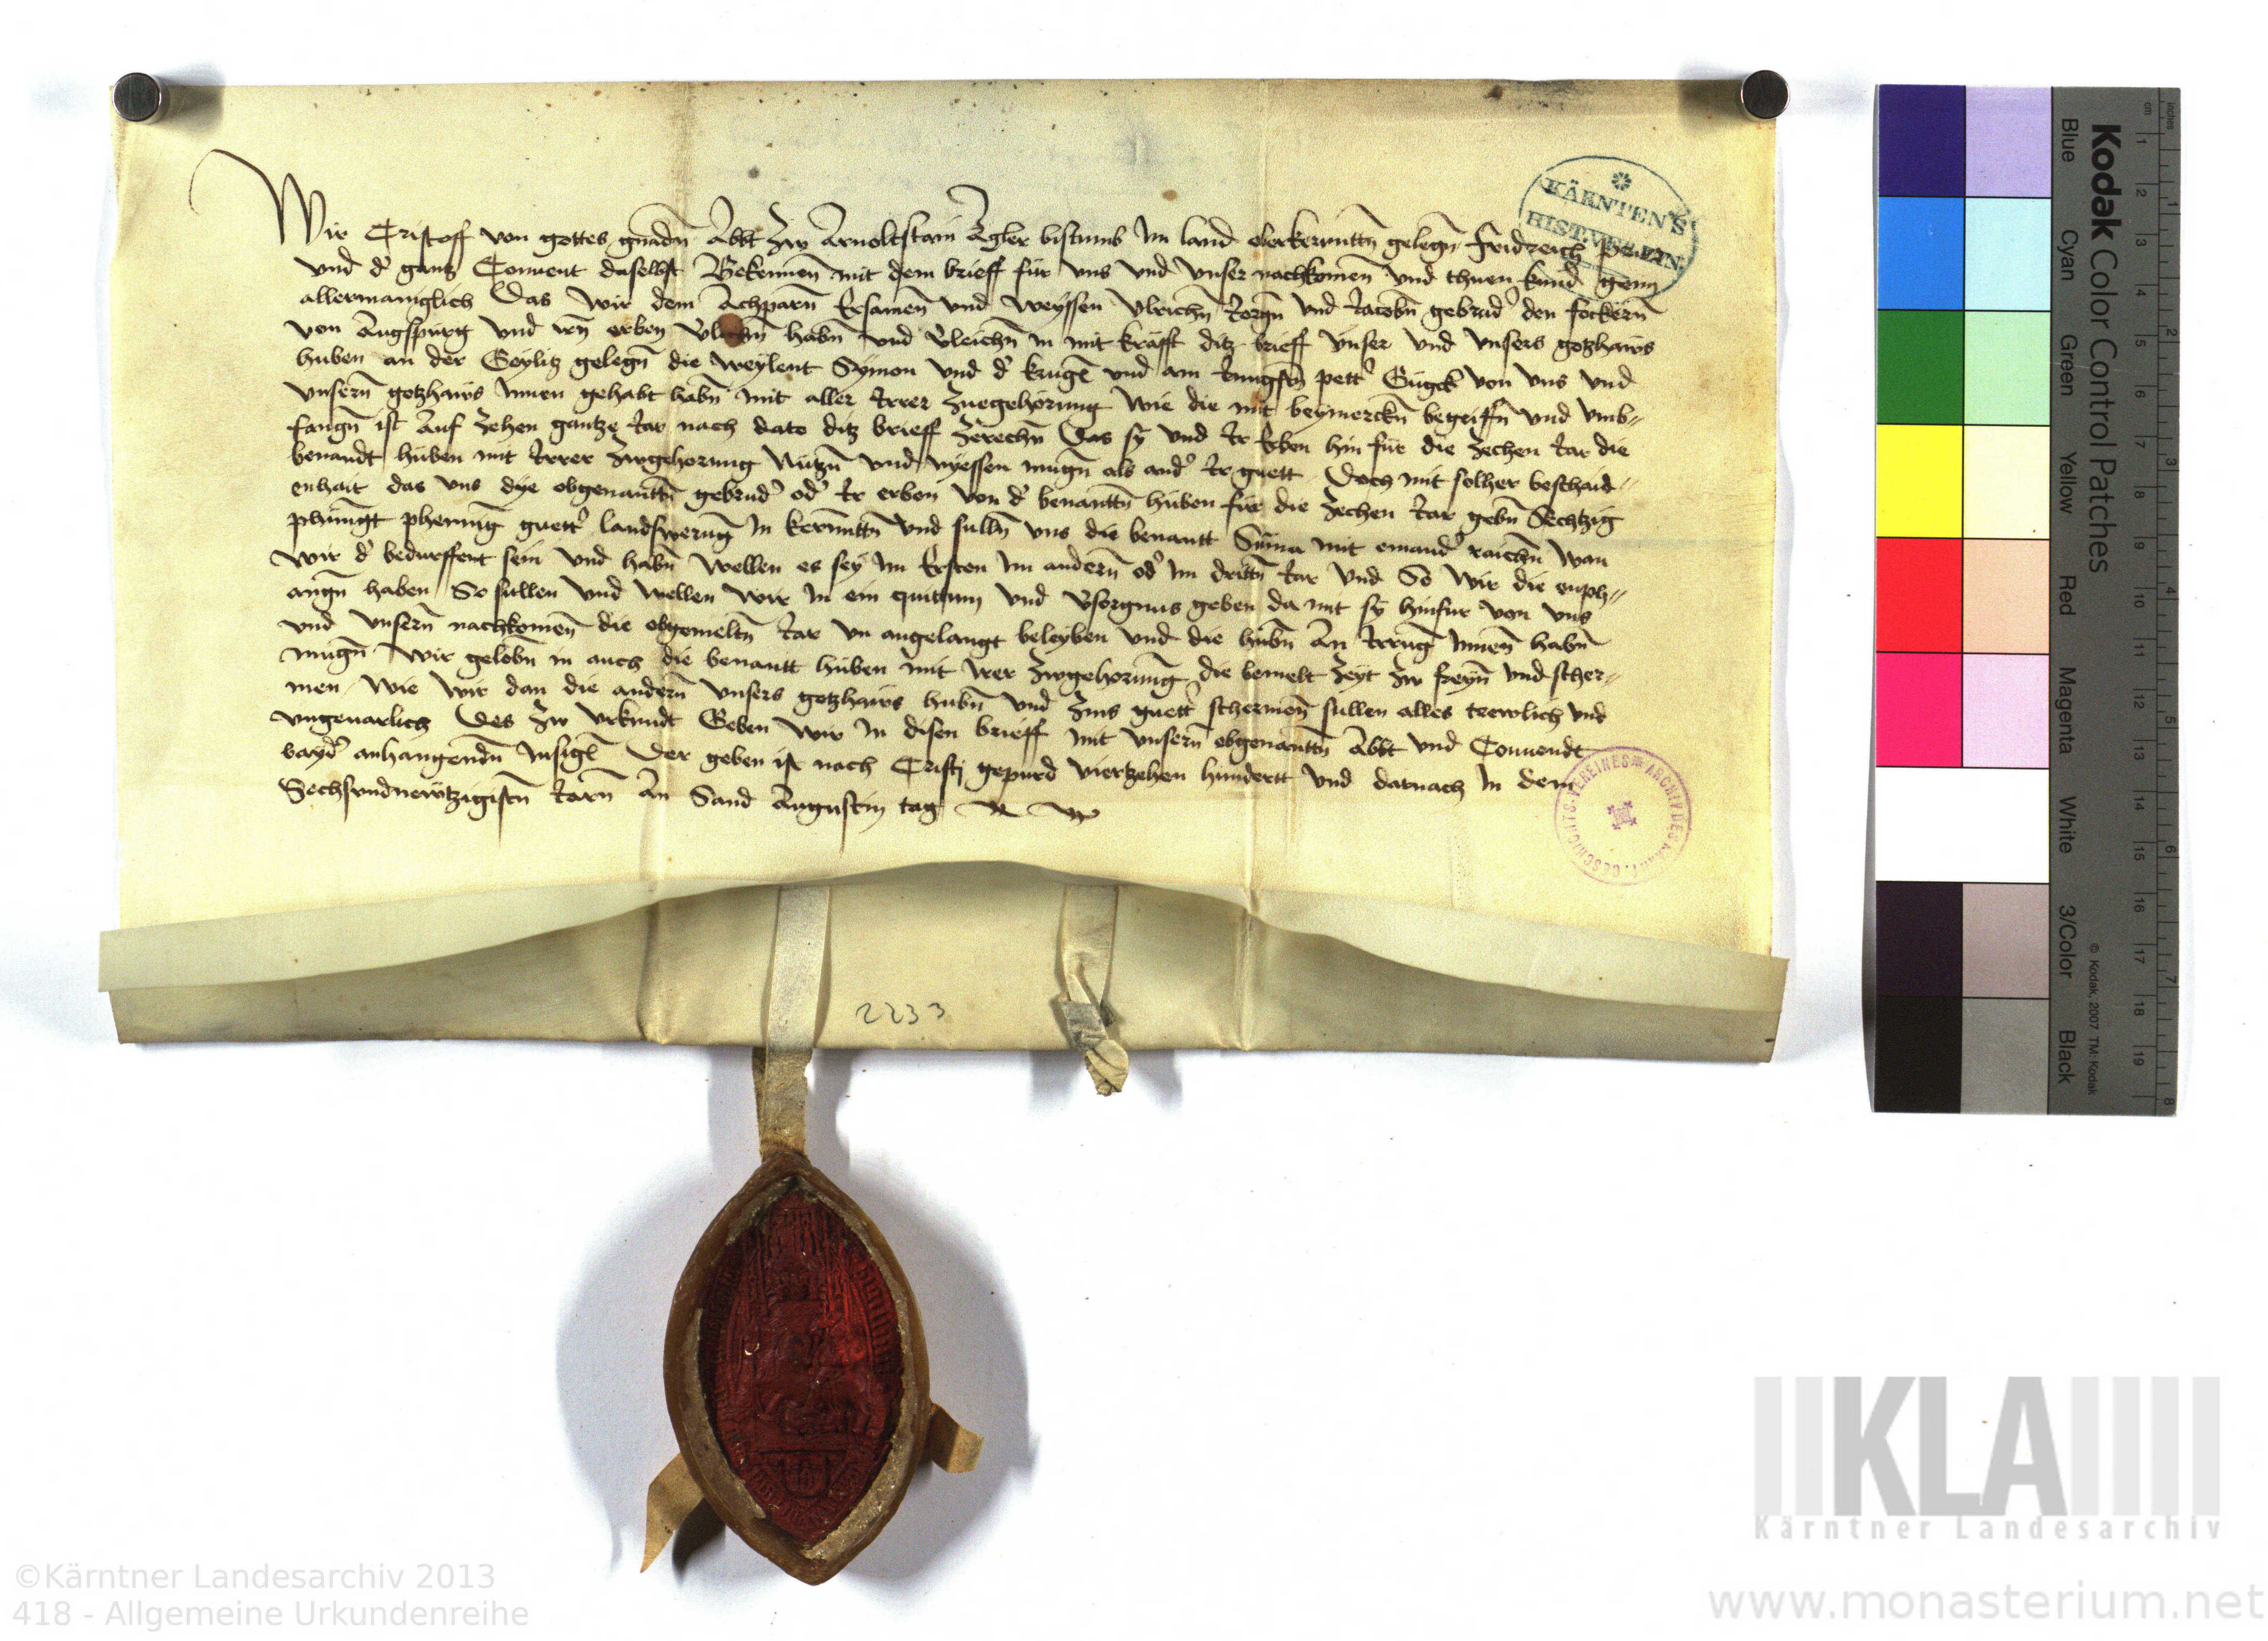 Wir Cristoff von gottes gnadn̄ Abbt Zw Arnoltstain Agler bistumb Im land oberkernnttn̄ gelegn̄ fridreich
vnd d' gantz Conuent daselbst Bekennen̄ mit dem brieff für vns vnd vnser nachkomen̄ vnd thuen kund genn
allermaniglich Das wir dem Achparn̄ Ersamen̄ vnd weyssen vlrichn̄ Iorgn̄ vnd Iacobn̄ gebrud' den fockern̄
von Augspurg vnd irn̄ erben habn̄ vnd v'leichn̄ in mit krafft ditz brieff vnser vnd vnsers gotzhaws
huben an der Geylitz gelegn̄ die weylent Symon vnd d' krug' vnd am Iungstn̄ pett' von vns vnd
vnsern̄ gotzhaws Innen gehabt habn̄ mit aller Irrer Zuegehorung wie die mit beymerckn̄ begriffn̄ vnd vmb-
fangn̄ ist Auf Zehen gantze Iar nach dato ditz brieff Zerechn̄ Das sy vnd Ir Erben hin für die Zechen Iar die
benandt huben mit Irrer Zwgehorung Nutzn̄ vnd nyessen mugn̄ als and' Ir guett Doch mit solher beschaid-
enhait das vns dye obgenanttn̄ gebrud' od' Ir erben von d' benanttn̄ huben für die Zechen Iar gebn̄ Sechtzig
phungt phennig guett' landswerug In kernnttn̄ vnd sulln̄ vns die benantt Suma mit einand' raichn̄ wan
wir d' bedurffent sein vnd habn̄ wellen es sey Im Ersten Im andern̄ od' Im drittn̄ Iar vnd So wir die enph-
angn̄ haben So sullen vnd wellen wir In ein quittung vnd v'sorgnus geben da mit sy hinfur von vns
vnd vnsern̄ nachkomen̄ die obgemeltn̄ Iar vn angelangt beleyben vnd die hubn̄ An Irrug Innen̄ habn̄
mugn̄ wir gelobn̄ in auch die benantt huben mit irer Zwgehorung die bemelt Zeyt Zw freyn̄ vnd scher-
men wie wir dan die andern̄ vnsers gotzhaws hubn̄ vnd Zins guett' schermen̄ sullen alles treewlich vnd
vngeuarlich Des Zw vrkundt Geben wir In disen brieff mit vnsern̄ obgenanttn̄ Abbt vnd Conuendt
bayd' anhangendn̄ Insigl Der geben ist nach Cristj gepurd viertzehen hundertt vnd darnach In dem
Sechsvndnewtzigistn̄ Iarn̄ An Sand Augustin tag
KÄRNTEN'S
HIST. VEREIN.
ARCHIV DES KÄRNT. GESCHICHTS-VEREINES
2233
Kodak Color Control Patches
Blue Cyan Green Yellow Red Magenta White 3/Color Black
© Kodak, 2007 TM: Kodak
cm 1 2 3 4 5 6 7 8 9 10 11 12 13 14 15 16 17 18 19
inches 1 2 3 4 5 6 7 8
KLA
Kärntner Landesarchiv
©Kärntner Landesarchiv 2013
418 - Allgemeine Urkundenreihe
www.monasterium.net